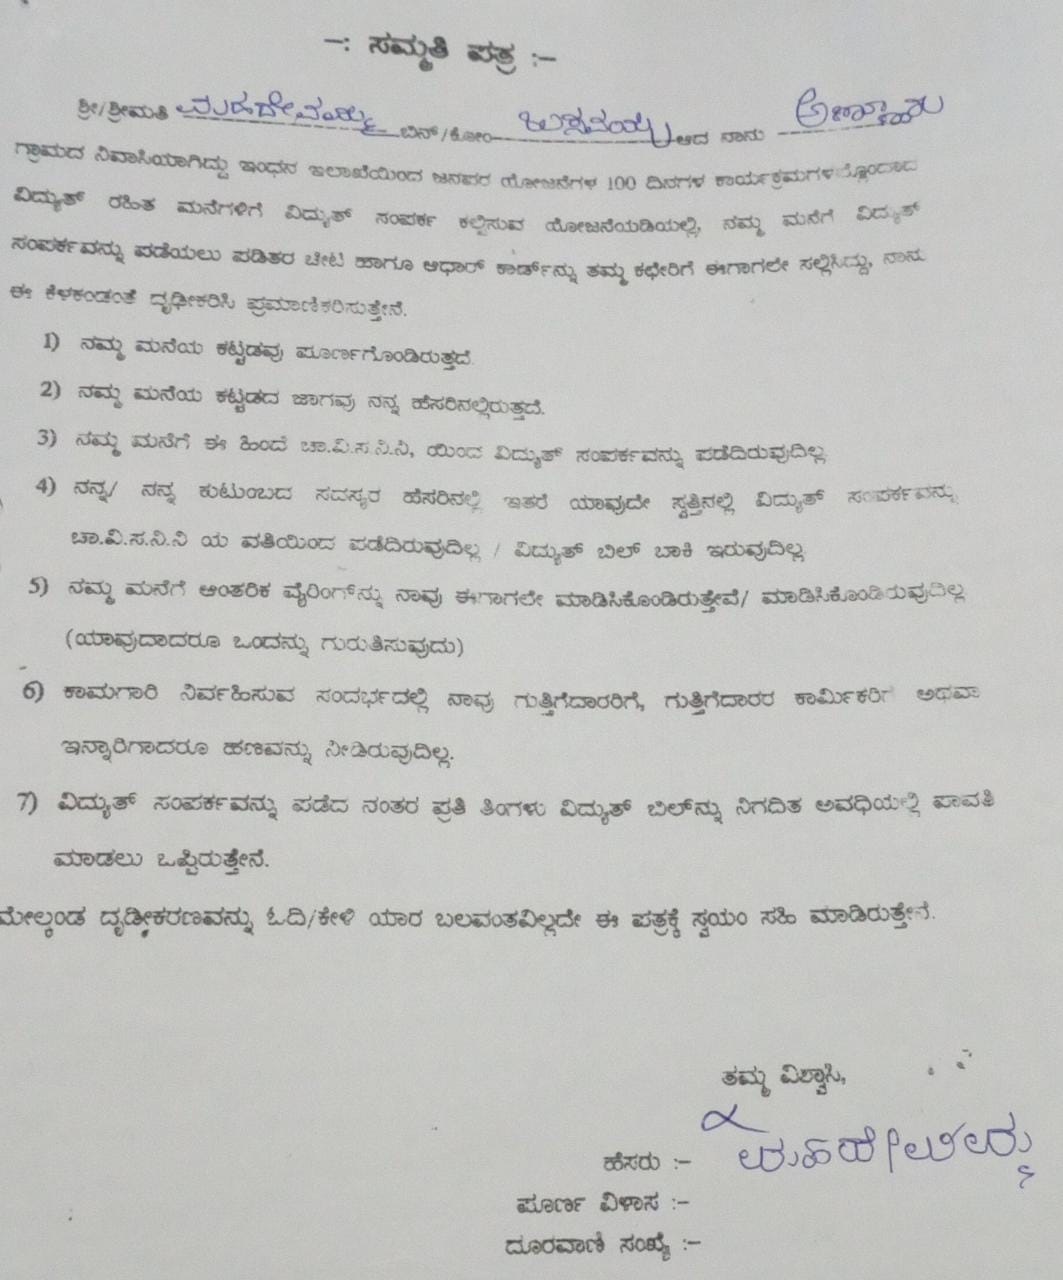 -: ಸಮ್ಮತಿ ಪತ್ರ :-
ಶ್ರೀ/ಶ್ರೀಮತಿ ಮಹದೇವಯ್ಯ ಬಿನ್/ಕೋಂ ಆದ ನಾನು
ಗ್ರಾಮದ ನಿವಾಸಿಯಾಗಿದ್ದು ಇಂಧನ ಇಲಾಖೆಯಿಂದ ಜನಪರ ಯೋಜನೆಗಳ 100 ದಿನಗಳ ಕಾರ್ಯಕ್ರಮಗಳಲ್ಲೊಂದಾದ
ವಿದ್ಯುತ್ ರಹಿತ ಮನೆಗಳಿಗೆ ವಿದ್ಯುತ್ ಸಂಪರ್ಕ ಕಲ್ಪಿಸುವ ಯೋಜನೆಯಡಿಯಲ್ಲಿ, ನಮ್ಮ ಮನೆಗೆ ವಿದ್ಯುತ್
ಸಂಪರ್ಕವನ್ನು ಪಡೆಯಲು ಪಡಿತರ ಚೀಟಿ ಹಾಗೂ ಆಧಾರ್ ಕಾರ್ಡ್‌ನ್ನು ತಮ್ಮ ಕಛೇರಿಗೆ ಈಗಾಗಲೇ ಸಲ್ಲಿಸಿದ್ದು, ನಾನು
ಈ ಕೆಳಕಂಡಂತೆ ದೃಢೀಕರಿಸಿ ಪ್ರಮಾಣಿಕರಿಸುತ್ತೇನೆ.
1) ನಮ್ಮ ಮನೆಯ ಕಟ್ಟಡವು ಪೂರ್ಣಗೊಂಡಿರುತ್ತದೆ.
2) ನಮ್ಮ ಮನೆಯ ಕಟ್ಟಡದ ಜಾಗವು ನನ್ನ ಹೆಸರಿನಲ್ಲಿರುತ್ತದೆ.
3) ನಮ್ಮ ಮನೆಗೆ ಈ ಹಿಂದೆ ಚಾ.ವಿ.ಸ.ನಿ.ನಿ, ಯಿಂದ ವಿದ್ಯುತ್ ಸಂಪರ್ಕವನ್ನು ಪಡೆದಿರುವುದಿಲ್ಲ
4) ನನ್ನ/ ನನ್ನ ಕುಟುಂಬದ ಸದಸ್ಯರ ಹೆಸರಿನಲ್ಲಿ ಇತರೆ ಯಾವುದೇ ಸ್ವತ್ತಿನಲ್ಲಿ ವಿದ್ಯುತ್ ಸಂಪರ್ಕವನ್ನು
ಚಾ.ವಿ.ಸ.ನಿ.ನಿ ಯ ವತಿಯಿಂದ ಪಡೆದಿರುವುದಿಲ್ಲ / ವಿದ್ಯುತ್ ಬಿಲ್ ಬಾಕಿ ಇರುವುದಿಲ್ಲ
5) ನಮ್ಮ ಮನೆಗೆ ಆಂತರಿಕ ವೈರಿಂಗ್‌ನ್ನು ನಾವು ಈಗಾಗಲೇ ಮಾಡಿಸಿಕೊಂಡಿರುತ್ತೇವೆ/ ಮಾಡಿಸಿಕೊಂಡಿರುವುದಿಲ್ಲ
(ಯಾವುದಾದರೂ ಒಂದನ್ನು ಗುರುತಿಸುವುದು)
6) ಕಾಮಗಾರಿ ನಿರ್ವಹಿಸುವ ಸಂದರ್ಭದಲ್ಲಿ ನಾವು ಗುತ್ತಿಗೆದಾರರಿಗೆ, ಗುತ್ತಿಗೆದಾರರ ಕಾರ್ಮಿಕರಿಗೆ ಅಥವಾ
ಇನ್ನಾರಿಗಾದರೂ ಹಣವನ್ನು ನೀಡಿರುವುದಿಲ್ಲ.
7) ವಿದ್ಯುತ್ ಸಂಪರ್ಕವನ್ನು ಪಡೆದ ನಂತರ ಪ್ರತಿ ತಿಂಗಳು ವಿದ್ಯುತ್ ಬಿಲ್‌ನ್ನು ನಿಗದಿತ ಅವಧಿಯಲ್ಲಿ ಪಾವತಿ
ಮಾಡಲು ಒಪ್ಪಿರುತ್ತೇನೆ.
ಮೇಲ್ಕಂಡ ದೃಡೀಕರಣವನ್ನು ಓದಿ/ಕೇಳಿ ಯಾರ ಬಲವಂತವಿಲ್ಲದೇ ಈ ಪತ್ರಕ್ಕೆ ಸ್ವಯಂ ಸಹಿ ಮಾಡಿರುತ್ತೇನೆ.
ತಮ್ಮ ವಿಶ್ವಾಸಿ,
ಹೆಸರು :- ಮಹದೇವಯ್ಯ
ಪೂರ್ಣ ವಿಳಾಸ :-
ದೂರವಾಣಿ ಸಂಖ್ಯೆ :-